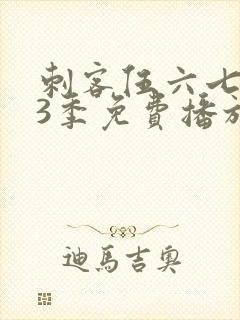 刺客伍六七
3季免費播放
迪馬吉奧